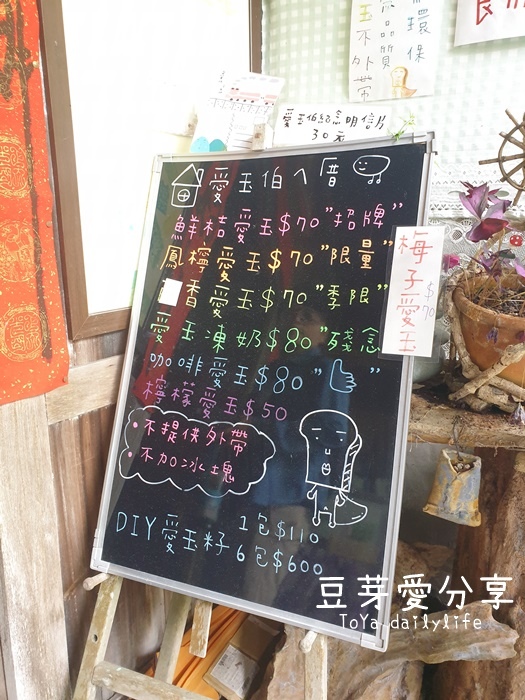 環保
品質
玉不外帶
愛玉伯紀念明信片
30元
愛玉伯ㄟ厝
鮮桔愛玉$70"招牌"
鳳檸愛玉$70"限量"
香愛玉$70"季限"
愛玉凍奶$80"殘念
咖啡愛玉$80" "
檸檬愛玉$50
梅子愛玉
$70
•不提供外帶
•不加冰塊
DIY愛玉籽 1包$110
6包$600
豆芽愛分享
ToYa dailylife